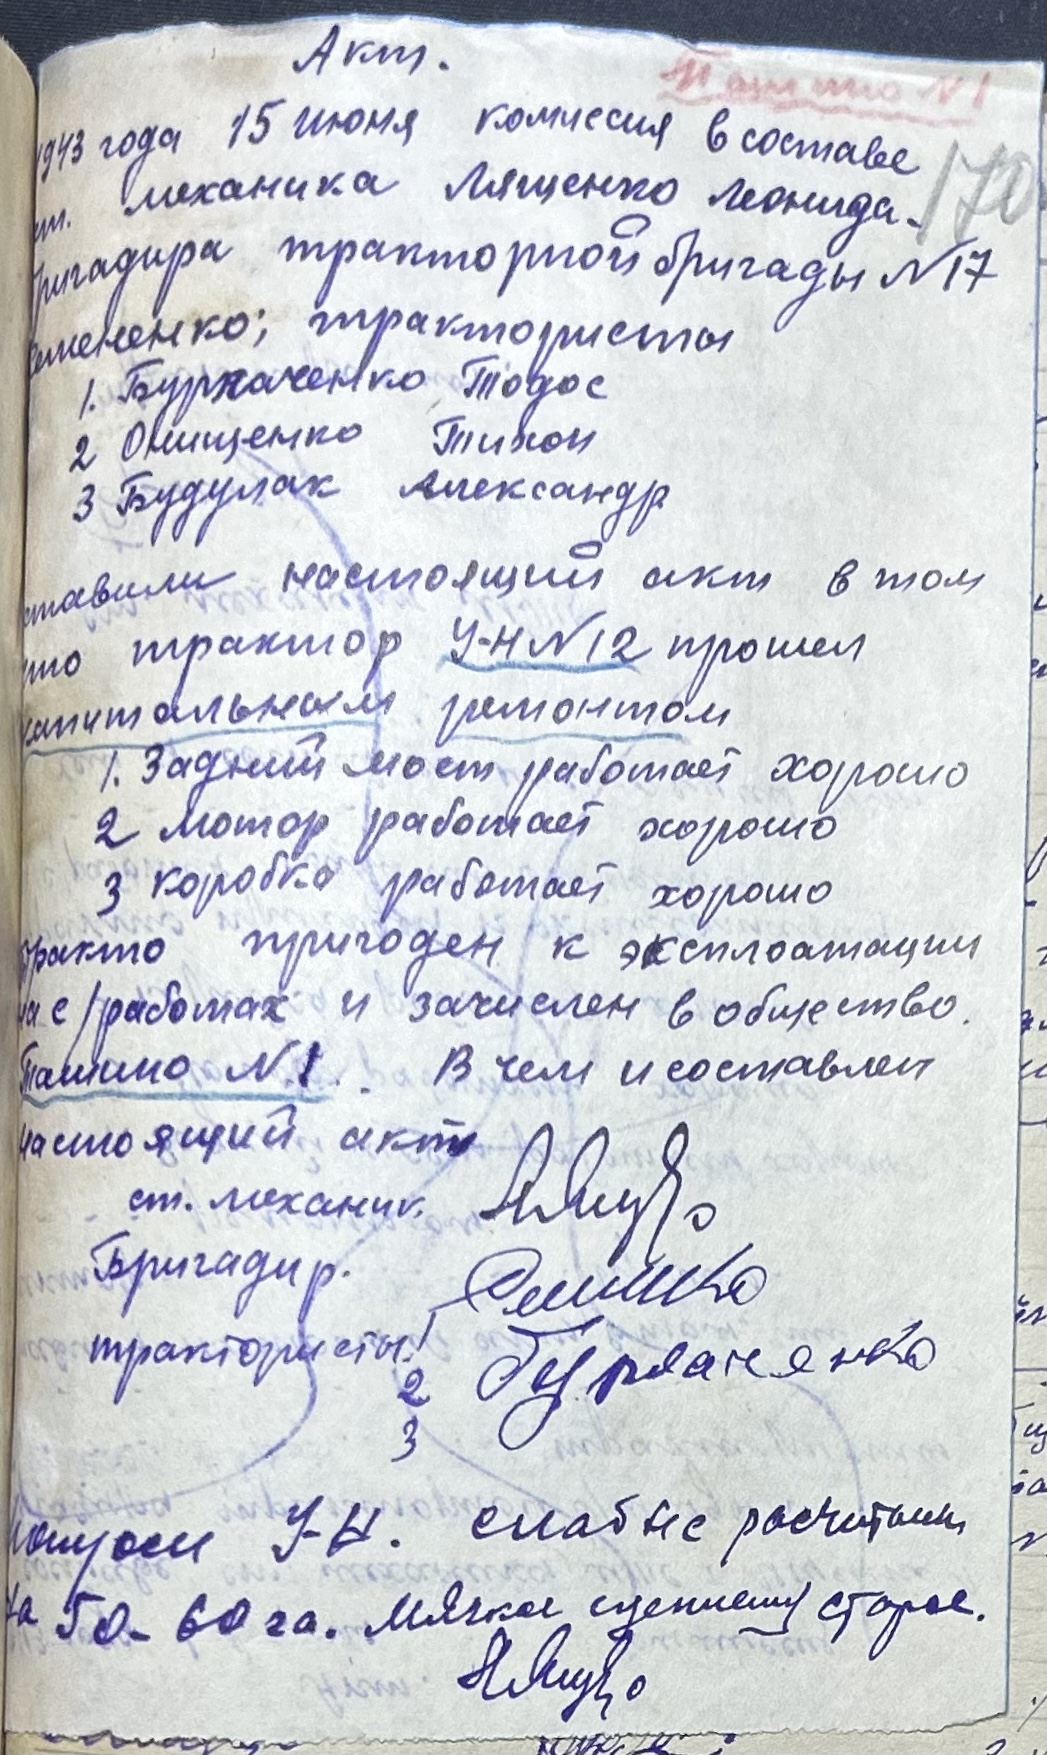 Акт.
Ташино N 1
170
1943 года 15 июня комиссия в составе
ст. механика Лященко Леонида.
Бригадира тракторной бригады N 17
Семененко; трактористы
1. Бурлаченко Тодос
2 Онищенко Тихон
3 Будулак Александр
ставили настоящий акт в том
что трактор У-Н N 12 прошел
капитальным ремонтом
1. Задний мост работает хорошо
2 Мотор работает хорошо
3 коробка работает хорошо
Тракто пригоден к эксплоатации
на с/работах и зачислен в общество.
Ташино N. 1. В чем и составлен
настоящий акт
ст. механик.
Бригадир.
трактористы! Бурлаченко
2
3
У-Н. слаб не расчитыв
на 50-60 га. Мягкое сцепление старое.